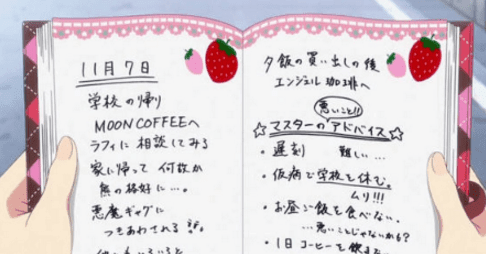 11月7日
学校の帰り
MOON COFFEEへ
ラフィに相談してみる
家に帰って 何故か
熊の格好に…。
悪魔ギャグに
つきあわされる
夕飯の買い出しの後
エンジェル珈琲へ
悪いこと!!
☆マスターのアドバイス☆
・遅刻 難しい…
・仮病で学校を休む。
ムリ!!!
・お昼ご飯を食べない。
…悪いことじゃないかも?
・1日コーヒーを飲